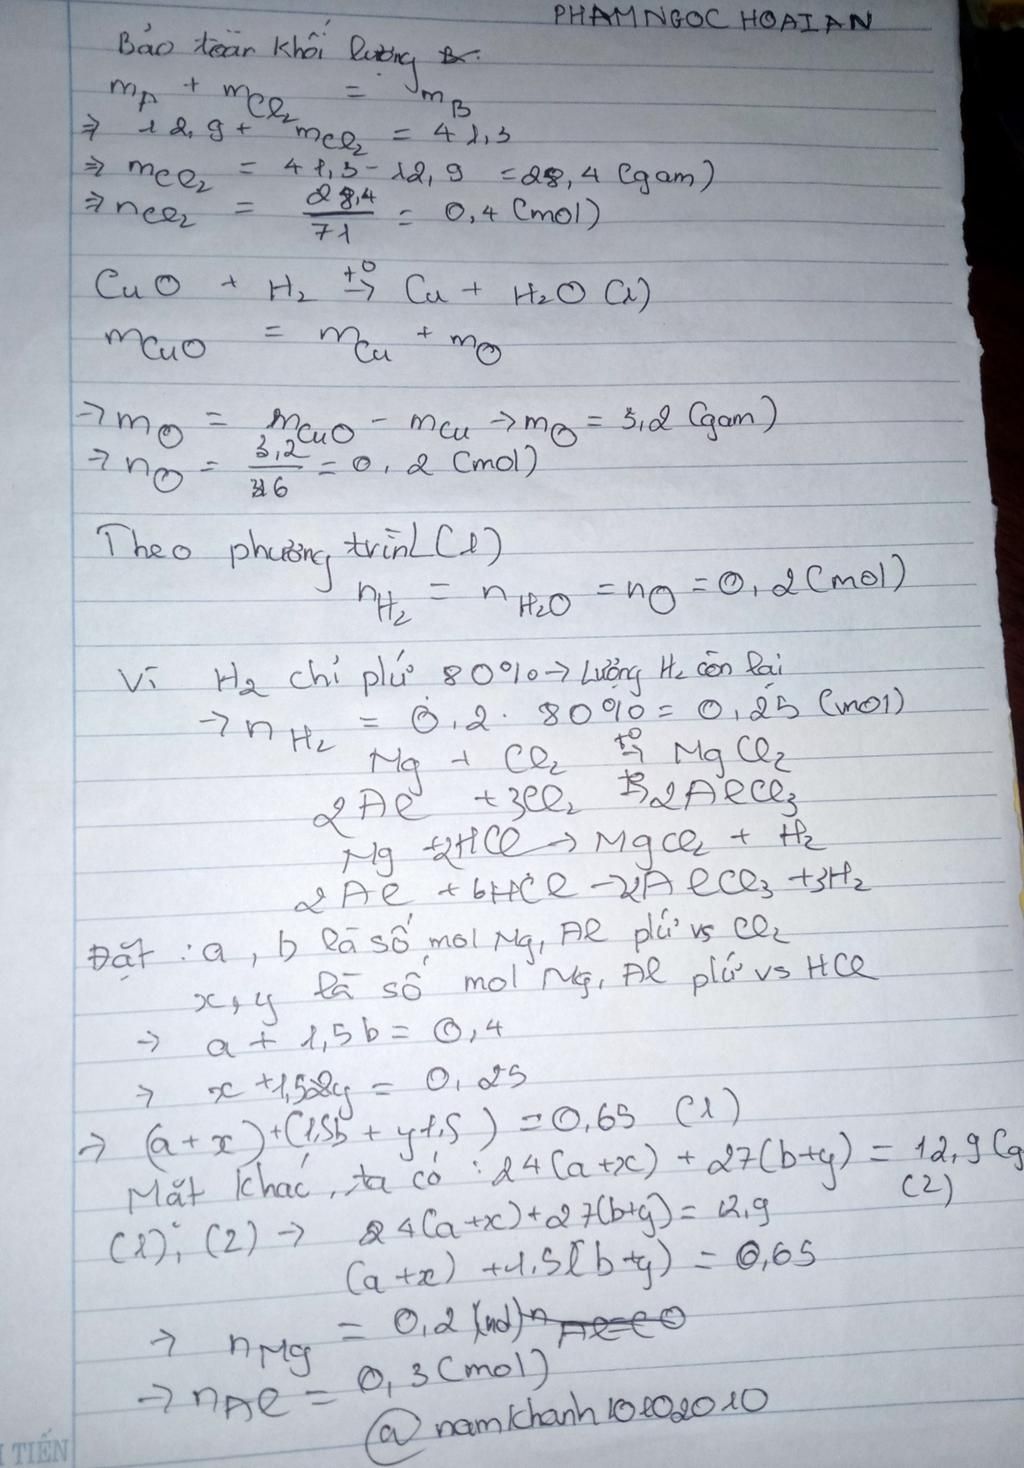 PHAM NGOC HOAI AN
Bảo toàn khối lượng
m_A + m_Cl2 = m_B
⇒ 12,9 + m_Cl2 = 41,3
⇒ m_Cl2 = 41,3 - 12,9 = 28,4 (gam)
⇒ n_Cl2 = 28,4/71 = 0,4 (mol)
CuO + H2 →(t0) Cu + H2O (1)
m_CuO = m_Cu + m_O
→ m_O = m_CuO - m_Cu → m_O = 3,2 (gam)
→ n_O = 3,2/16 = 0,2 (mol)
Theo phương trình (1)
n_H2 = n_H2O = n_O = 0,2 (mol)
Vì H2 chỉ p/ứ 80% → Lượng H2 còn lại
→ n_H2 = 0,2 . 80% = 0,25 (mol)
Mg + Cl2 →(t0) MgCl2
2Al + 3Cl2 →(t0) 2AlCl3
Mg + 2HCl → MgCl2 + H2
2Al + 6HCl → 2AlCl3 + 3H2
Đặt : a, b là số mol Mg, Al p/ứ vs Cl2
x, y là số mol Mg, Al p/ứ vs HCl
→ a + 1,5b = 0,4
→ x + 1,5y = 0,25
→ (a+x) + (1,5b + y1,5) = 0,65 (1)
Mặt khác, ta có : 24(a+x) + 27(b+y) = 12,9 (g
(2)
(1); (2) → 24(a+x) + 27(b+y) = 12,9
(a+x) + 1,5(b+y) = 0,65
→ n_Mg = 0,2 (mol)
→ n_Al = 0,3 (mol)
@namkhanh10102010
TIẾN